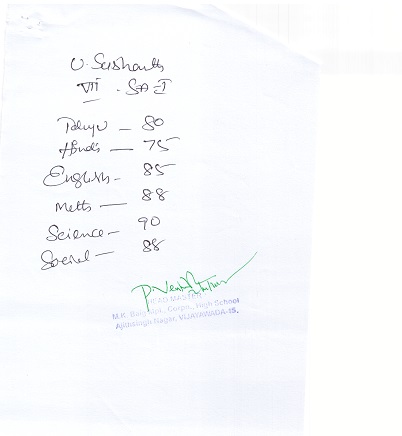 U. Sushanth
VII - SA-I
Telugu - 80
Hindi - 75
English - 85
Meths - 88
Science - 90
Social - 88
HEAD MASTER
Corpn., High School
Ajithsingh Nagar, VIJAYAWADA-15.